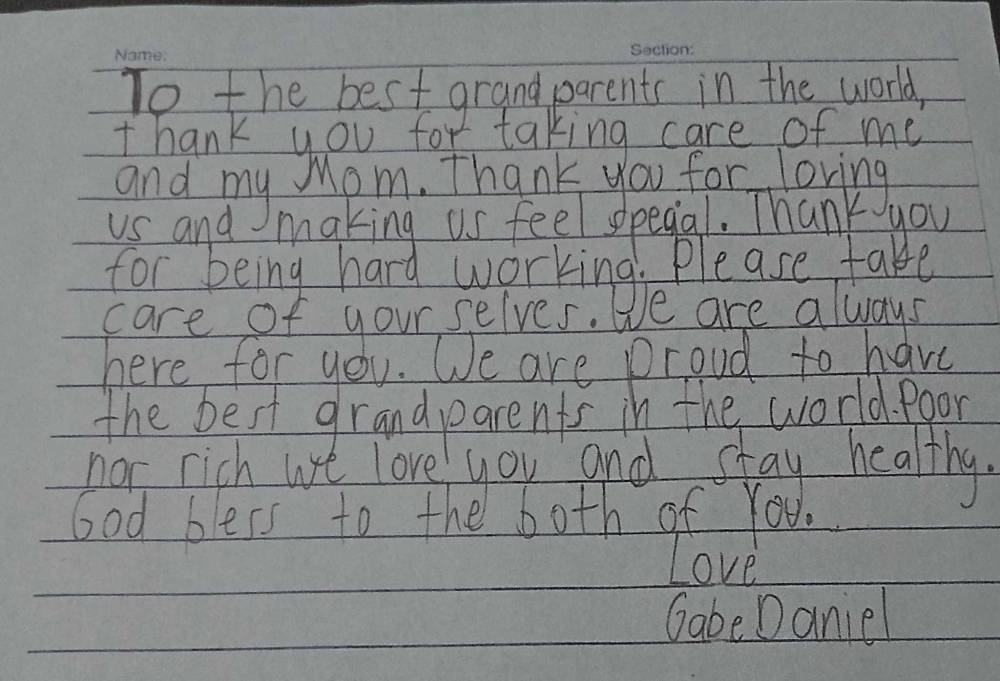 Name: Section:
To the best grandparents in the world,
thank you for taking care of me
and my Mom. Thank you for loving
us and making us feel special. Thank you
for being hard working. Please take
care of your selves. We are always
here for you. We are proud to have
the best grandparents in the world. Poor
nor rich we love you and stay healthy.
God bless to the both of You.
Love
Gabe Daniel